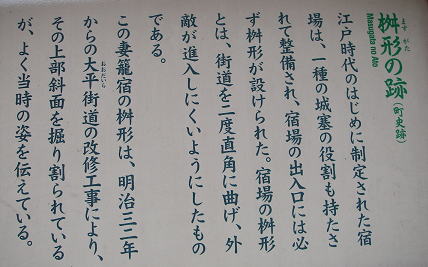 桝形の跡（町史跡）
ます がた あと
Masugata no Ato
江戸時代のはじめに制定された宿
場は、一種の城塞の役割も持たさ
れて整備され、宿場の出入口には必
ず桝形が設けられた。宿場の桝形
とは、街道を二度直角に曲げ、外
敵が進入しにくいようにしたもの
である。
この妻籠宿の桝形は、明治三二年
からの大平街道の改修工事により、
おおだいら
その上部斜面を掘り割られている
が、よく当時の姿を伝えている。